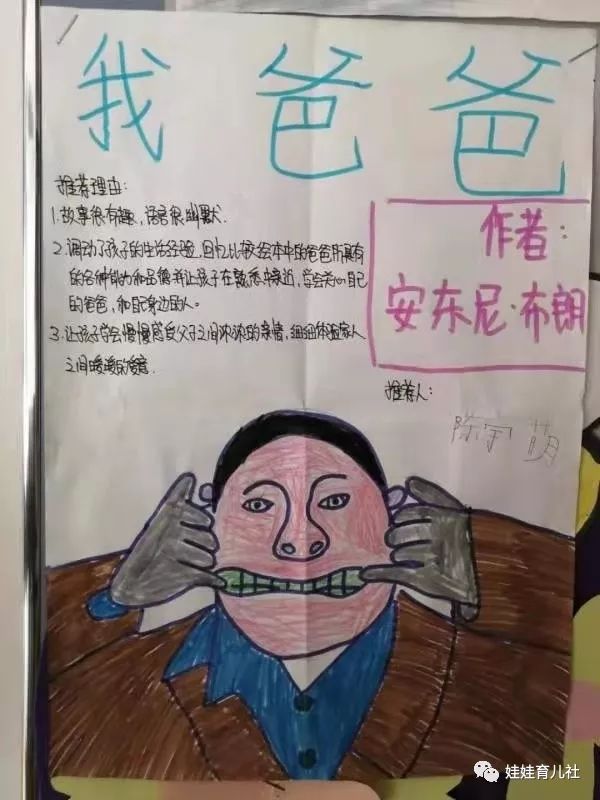 我爸爸
推荐理由：
1.故事很有趣，语言很幽默.
2.调动了孩子的生活经验，回忆比较绘本中的爸爸所具有
的各种能力和品德并让孩子在熟悉中亲近，学会关心自己
的爸爸，和自己身边的人。
3.让孩子学会慢慢感受父子之间浓浓的亲情，细细体查家人
之间暖暖的爱意.
作者：
安东尼·布朗
推荐人：
陈宇萌
娃娃育儿社